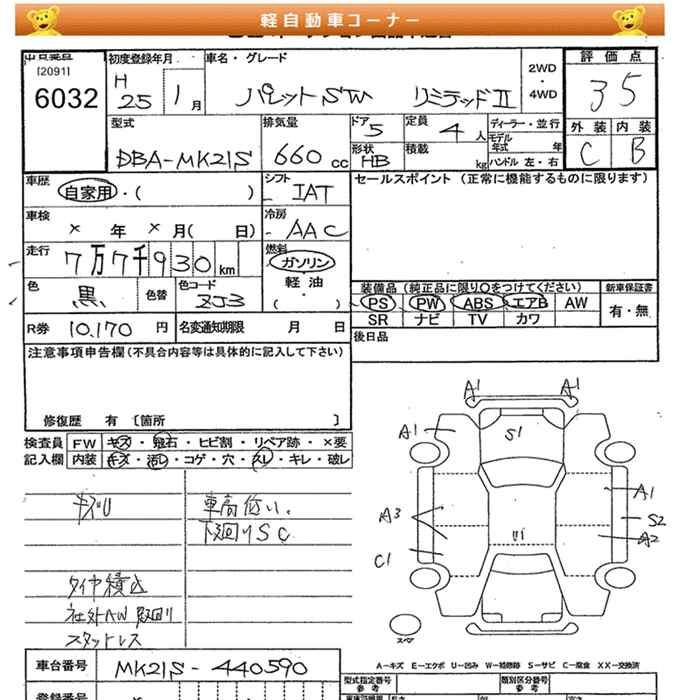 軽自動車コーナー
出品番号
[2091]
6032
初度登録年月
H
25 1月
車名・グレード
パレットSW リミテッドⅡ
2WD
・
4WD
評価点
35
型式
DBA-MK21S
排気量
660cc
ドア
5
定員
4人
ディーラー・並行
モデル
年式 年
形状
HB
積載
kg
ハンドル 左・右
外装 内装
C B
車歴
自家用・( )
シフト
IAT
セールスポイント (正常に機能するものに限ります)
車検
× 年 × 月( 日)
冷房
AAC
走行
7万7千930km
燃料
ガソリン
・
軽油
・
( )
色
黒
色替
色コード
ZJ3
装備品 (純正品に限り○をつけてください)
新車保証書
PS PW ABS エアB AW
有・無
SR ナビ TV カワ
R券 10,170円
名変通知期限 月 日
後日品
注意事項申告欄(不具合内容等は具体的に記入して下さい)
修復歴 有 〔箇所 〕
検査員
記入欄
FW キズ・飛石・ヒビ割・リペア跡・×要
内装 キズ・汚レ・コゲ・穴・スレ・キレ・破レ
車高低い、
下廻りSC
タイヤ積込
社外AW
スタットレス
A1 A1
A1
S1
A1
A3
S2
U1
A2
C1
スペア
A-キズ E-エクボ U-凹み W-補修跡 S-サビ C-腐食 XX-交換済
車台番号
MK21S-440590
型式指定番号
参考
類別区分番号
参考
登録番号